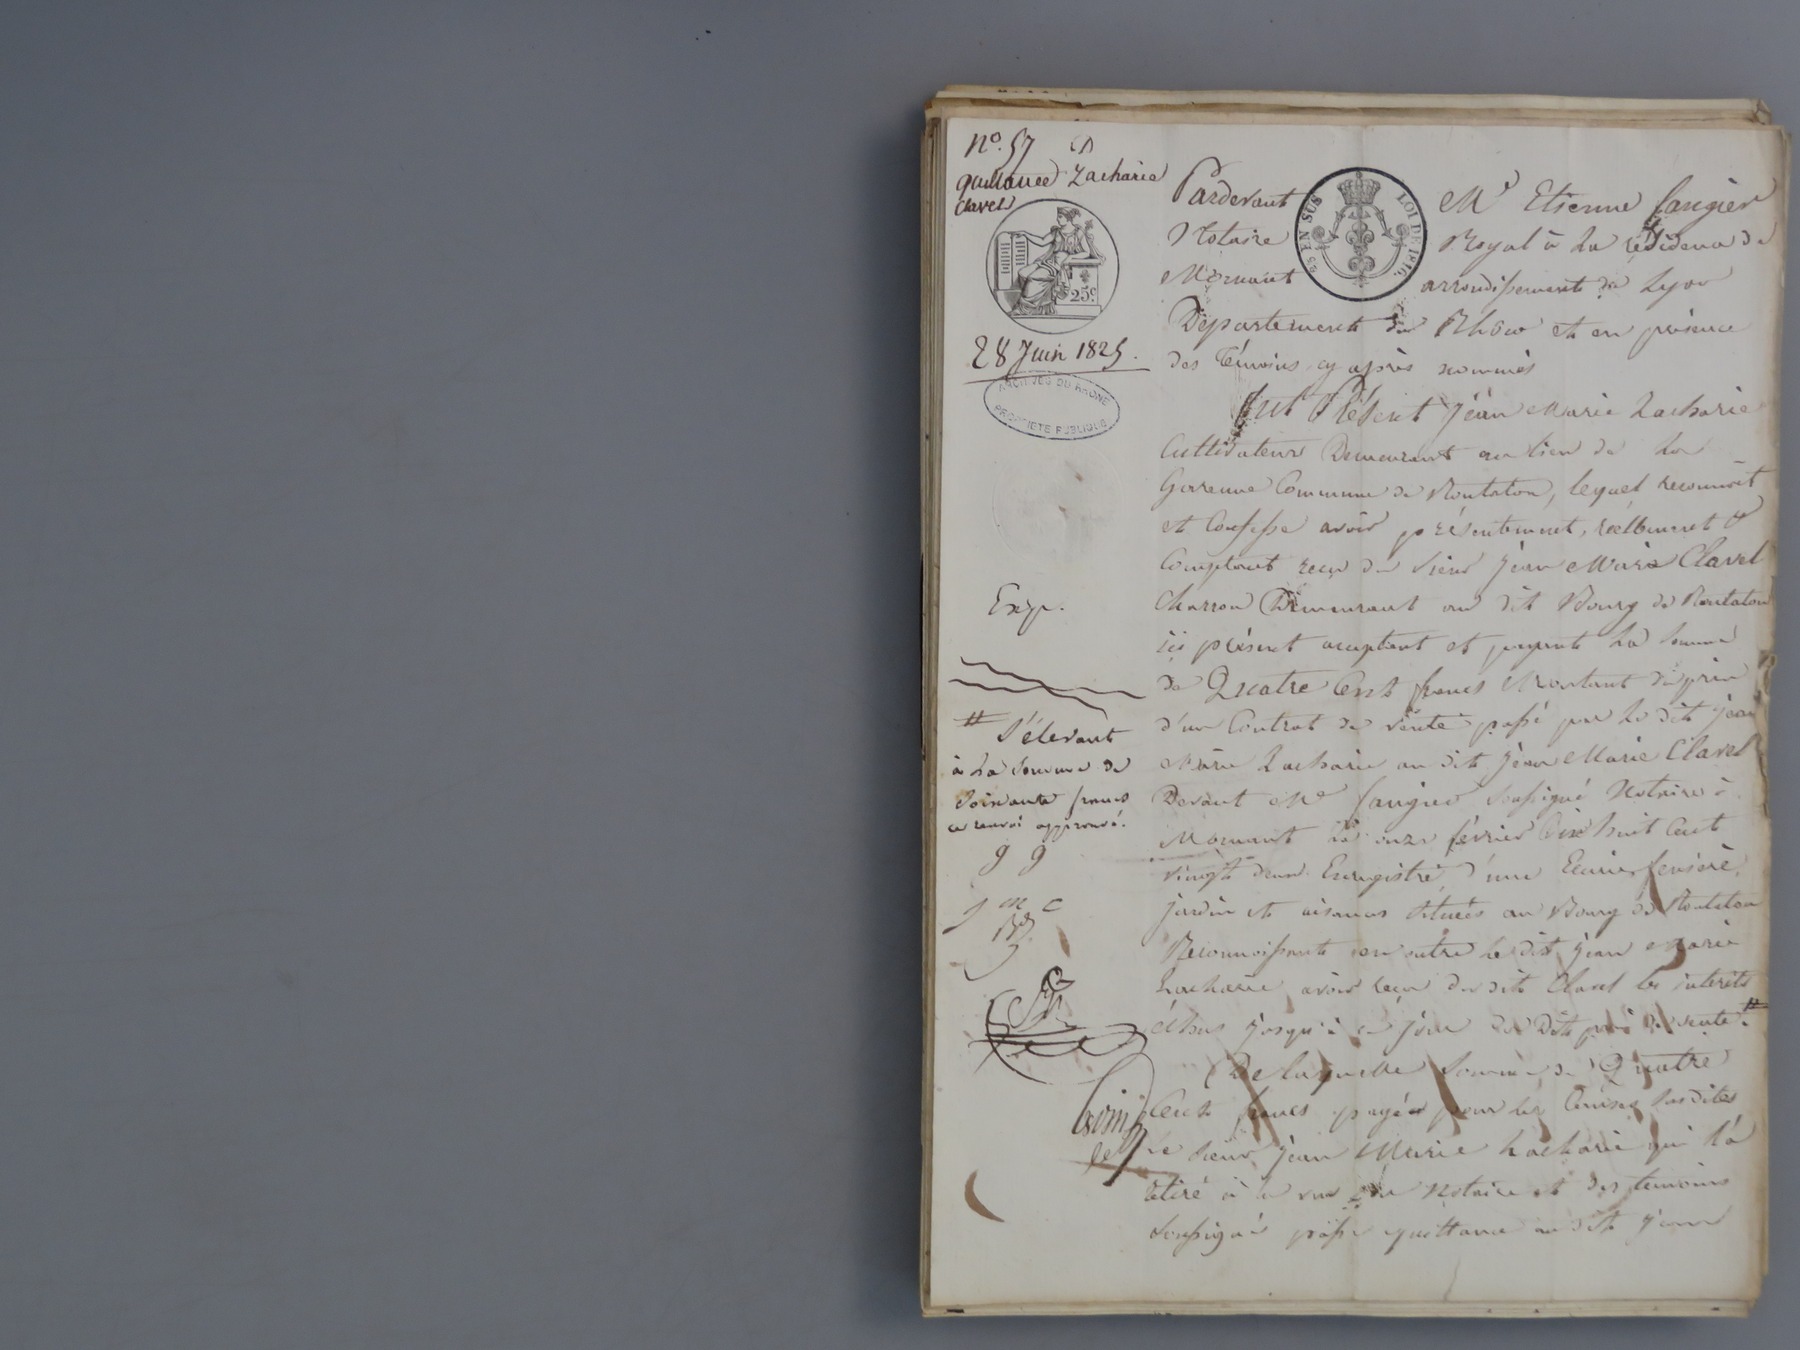 No. 57
quittance Zacharie
Clavel
25c.
28 Juin 1825.
ARCHIVES DU RHONE
PROPRIETE PUBLIQUE
25 EN SUS
LOI DE 1816.
Pardevant Me Etienne Laugier
Notaire Royal à La résidence de
Mornant arrondissement de Lyon
Département du Rhône et en présence
des témoins cy après nommés
fut Présent Jéan Marie Zacharie
Cultivateur Demeurant au lieu de La
Garenne Commune de Rontalon, lequel reconnoit
et Confesse avoir présentement, réellement &
Comptant reçu du Sieur Jéan Marie Clavel
Charron Demeurant au dit Bourg de Rontalon
ici présent acceptant et payant La Somme
de Quatre Cent francs Montant du prix
d'un Contrat de vente passé par Le dit Jéan
Marie Zacharie au dit Jéan Marie Clavel
Devant Me Laugier soussigné Notaire à
Mornant Le onze février Dix huit Cent
vingt deux Enregistré d'une Ecurie fenière,
jardin et aisances situés au Bourg de Rontalon
Reconnoissant en outre le dit Jéan Marie
Zacharie avoir reçu du dit Clavel les intérêts
échus jusqu'à ce jour du Dit prix de vente #
De laquelle Somme de Quatre
Cent francs payée pour les Causes susdites
le Sieur Jéan Marie Zacharie qui L'a
retiré à la vue du Notaire et des témoins
soussignés passe quittance au dit Jéan
Exp.
# S'élevant
à La Somme de
Soixante francs
ce renvoi approuvé.
g g
J M C